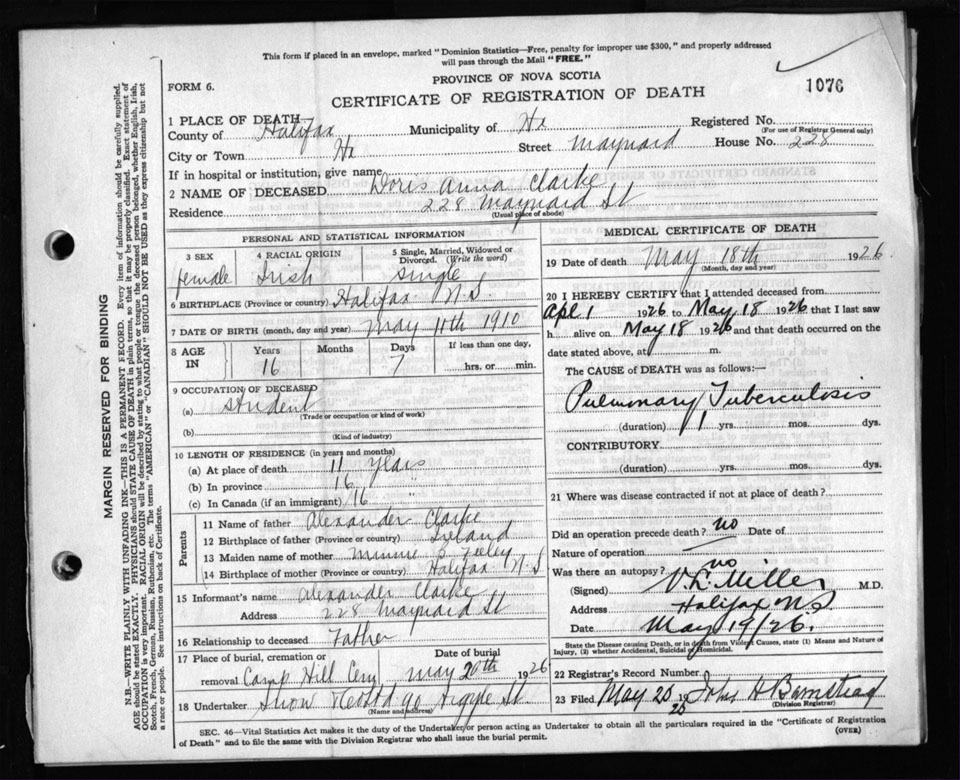 This form if placed in an envelope, marked "Dominion Statistics—Free, penalty for improper use $300," and properly addressed
will pass through the Mail "FREE."
PROVINCE OF NOVA SCOTIA
FORM 6.
CERTIFICATE OF REGISTRATION OF DEATH
1076
1 PLACE OF DEATH
County of Halifax Municipality of Hx Registered No.
(For use of Registrar General only)
City or Town Hx Street Maynard House No. 228
If in hospital or institution, give name
2 NAME OF DECEASED Doris Anna Clarke
Residence 228 Maynard St
(Usual place of abode)
PERSONAL AND STATISTICAL INFORMATION
3 SEX female
4 RACIAL ORIGIN Irish
5 Single, Married, Widowed or Divorced. (Write the word) single
6 BIRTHPLACE (Province or country) Halifax N.S.
7 DATE OF BIRTH (month, day and year) May 11th 1910
8 AGE IN Years 16 Months Days 7 If less than one day, hrs. or min.
9 OCCUPATION OF DECEASED
(a) student
(Trade or occupation or kind of work)
(b)
(Kind of industry)
10 LENGTH OF RESIDENCE (in years and months)
(a) At place of death 11 years
(b) In province 16 "
(c) In Canada (if an immigrant) 16 "
Parents
11 Name of father Alexander Clarke
12 Birthplace of father (Province or country) Ireland
13 Maiden name of mother Minnie
14 Birthplace of mother (Province or country) Halifax N.S
15 Informant's name Alexander Clarke
Address 228 Maynard St
16 Relationship to deceased Father
17 Place of burial, cremation or removal Camp Hill Cem. Date of burial May 20th 1926
18 Undertaker Snow 90 Argyle St.
(Name and address)
MEDICAL CERTIFICATE OF DEATH
19 Date of death May 18th 1926
(Month, day and year)
20 I HEREBY CERTIFY that I attended deceased from
Apl 1 1926 to May 18 1926 that I last saw
h alive on May 18 1926 and that death occurred on the
date stated above, at m.
The CAUSE of DEATH was as follows:—
Pulmonary Tuberculosis
(duration) 1 yrs. mos. dys.
CONTRIBUTORY.
(duration) yrs. mos. dys.
21 Where was disease contracted if not at place of death?
Did an operation precede death? no Date of
Nature of operation
Was there an autopsy? no
(Signed) V.L. Miller M.D.
Address Halifax NS
Date May 19/26.
State the Disease causing Death, or in death from Violent Causes, state (1) Means and Nature of
Injury, (2) whether Accidental, Suicidal or Homicidal.
22 Registrar's Record Number
23 Filed May 20 19 John H Barnstead
(Division Registrar)
SEC. 46—Vital Statistics Act makes it the duty of the Undertaker or person acting as Undertaker to obtain all the particulars required in the "Certificate of Registration
of Death" and to file the same with the Division Registrar who shall issue the burial permit.
(OVER)
MARGIN RESERVED FOR BINDING
N.B.—WRITE PLAINLY WITH UNFADING INK—THIS IS A PERMANENT RECORD. Every item of information should be carefully supplied.
AGE should be stated EXACTLY. PHYSICIANS should STATE CAUSE OF DEATH in plain terms, so that it may be properly classified. Exact statement of
OCCUPATION is very important. RACIAL ORIGIN will be described by stating to what people or tongue the deceased person belonged, whether English, Irish,
Scotch, French, German, Russian, Ruthenian, etc. The terms "AMERICAN" or "CANADIAN" SHOULD NOT BE USED as they express citizenship but not
a race or people. See instructions on back of Certificate.